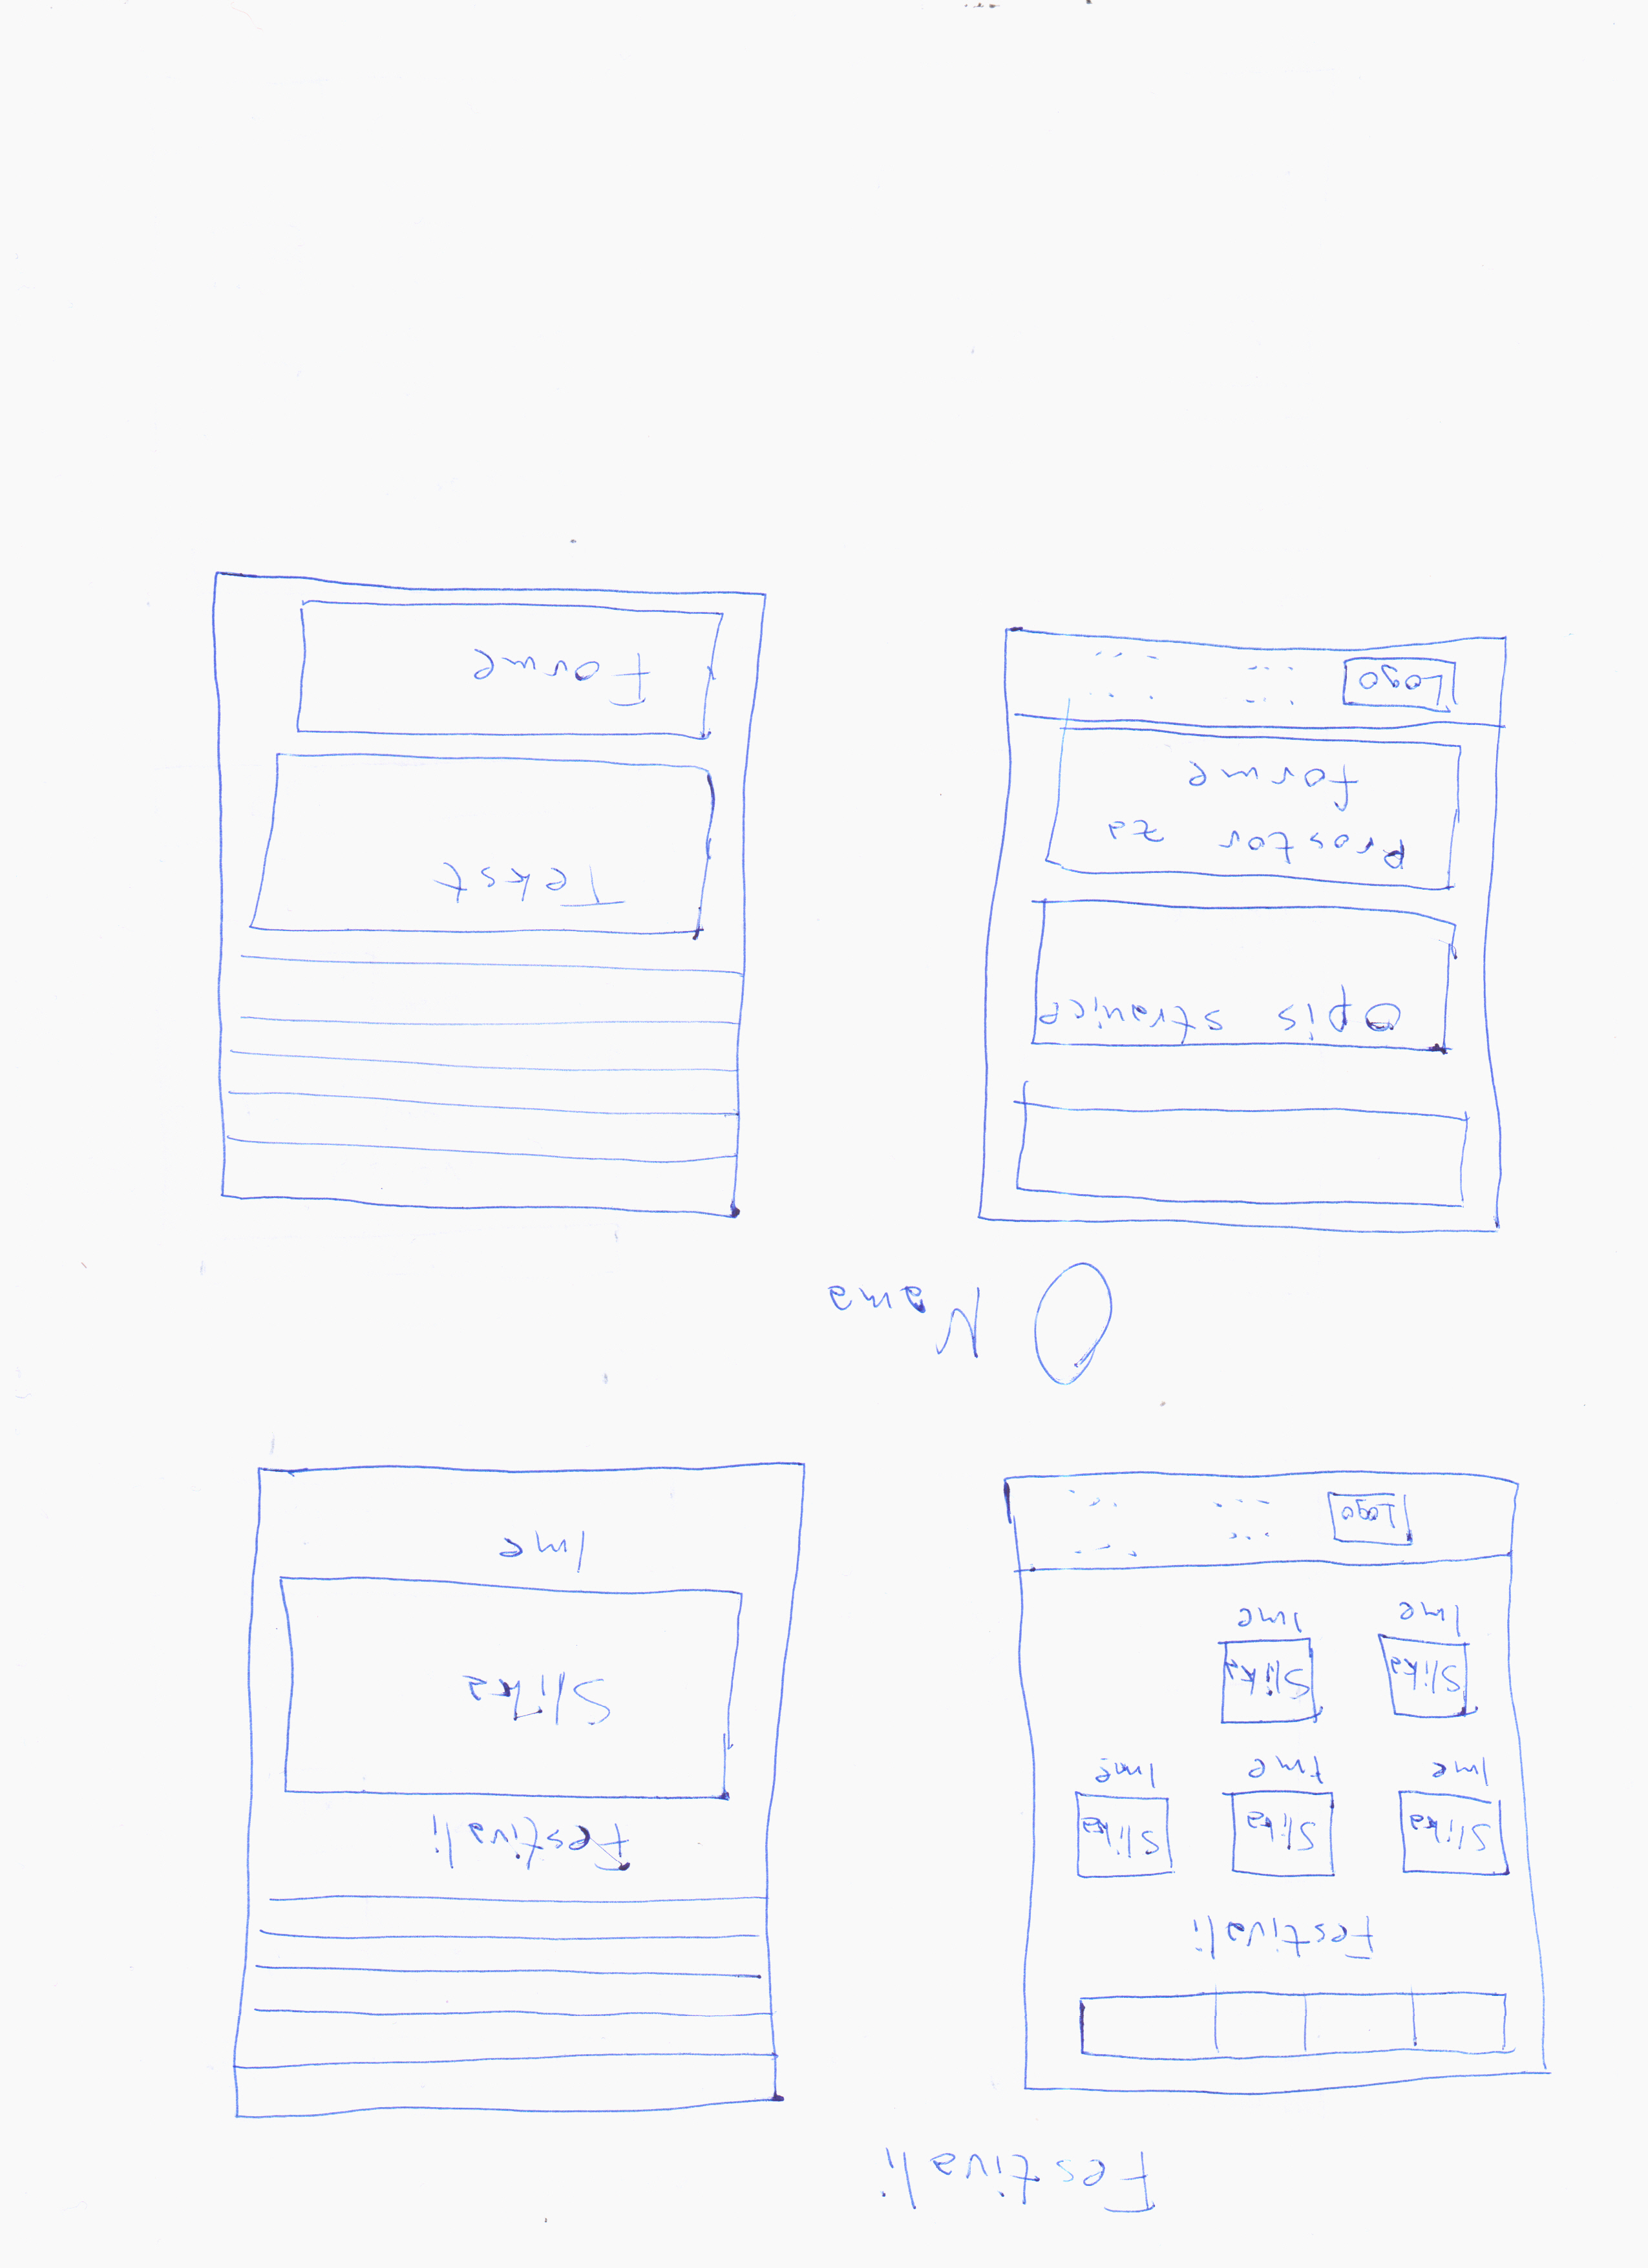 Festivali
Festivali
Slika Slika Slika
Ime Ime Ime
Slika Slika
Ime Ime
Logo
Festivali
Slika
Ime
O Nama
Opis stranice
Prostor za
forme
Logo
Tekst
Forme